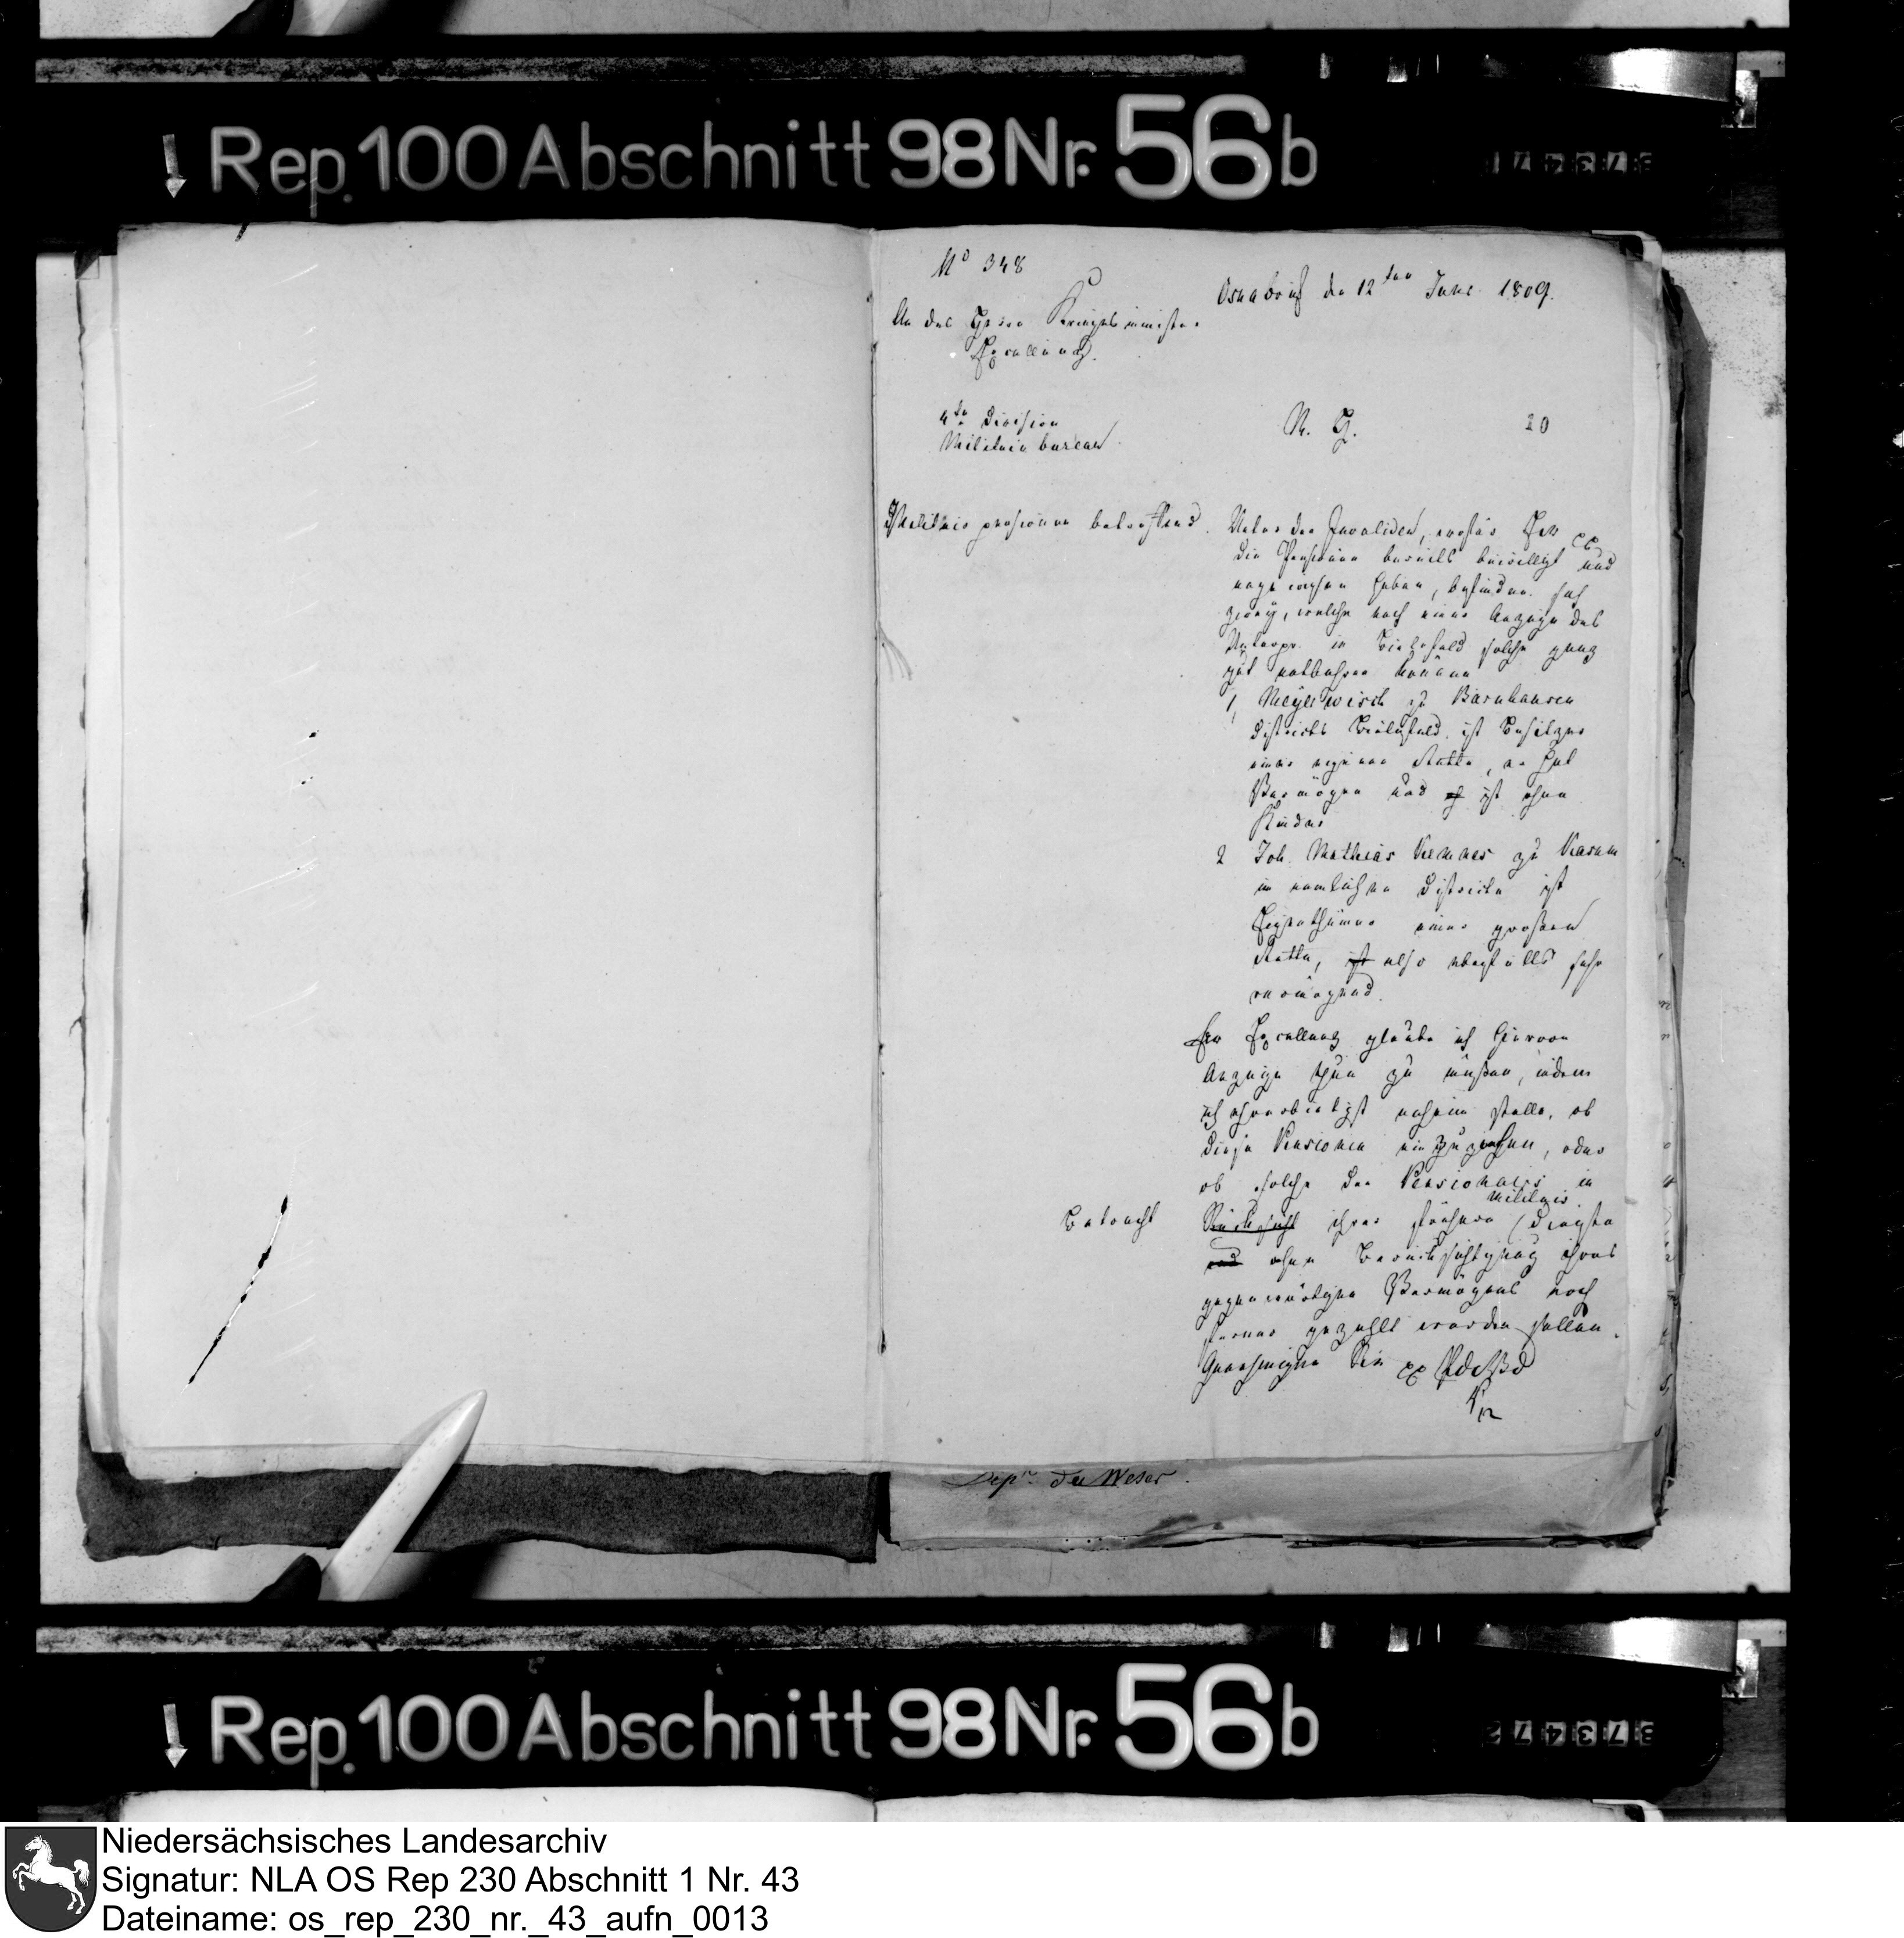 Rep. 100 Abschnitt 98 Nr. 56 b
373471
No 348
Osnabrück den 12ten Juni 1809.
An des Herrn Kriegsminister
Excellenz.
4te Division
Militair bureau
M. G.
20
Militair pensionen betreffend.
Unter den Invaliden, welchen Ew xx
die Pensionen bereits bewilligt und
angewiesen haben, befinden sich
zwey, welche nach einer Anzeige des
Unterpr. in Bielefeld solche ganz
gut entbehren können
1, Meyer Wisch zu Barnhausen
Districts Bielefeld, ist Besitzer
einer eigenen Stätte, er hat
Vermögen und ist ohne
Kinder
2 Joh. Mathias Kemner zu
im nemlichen Districte ist
Eigenthümer einer großen
Stätte, ist also ebenfalls sehr
vermögend.
Ew Excellenz glaube ich hiervon
Anzeige thun zu müßen, indem
ich ehrerbietigst anheim stelle, ob
diese Pensionen einzuziehen, oder
ob solche den Pensionairs in
Militair
Betracht
Rücksicht ihrer früheren Dienste
und ohne Berücksichtigung ihres
gegenwärtigen Vermögens noch
ferner gezahlt werden sollen.
Genehmigen Sie xx
Dept. du Weser.
Rep. 100 Abschnitt 98 Nr. 56 b
373472
Niedersächsisches Landesarchiv
Signatur: NLA OS Rep 230 Abschnitt 1 Nr. 43
Dateiname: os_rep_230_nr._43_aufn_0013